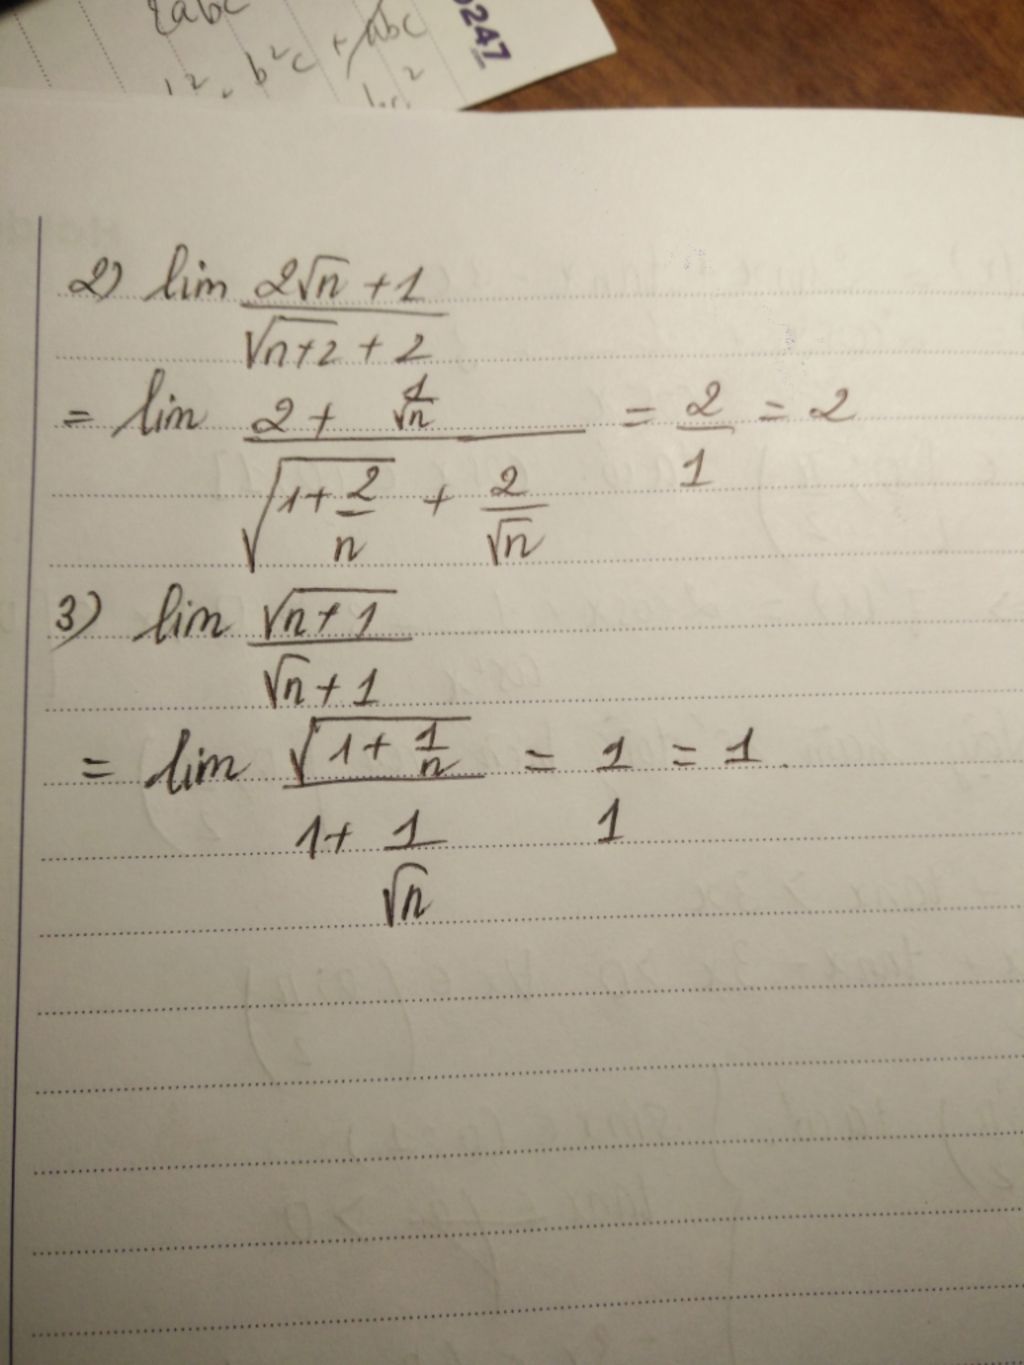 2abc
b²c + abc
247
2) lim (2√n + 1)/(√(n+2) + 2)
= lim (2 + 1/√n)/(√(1 + 2/n) + 2/√n) = 2/1 = 2
3) lim √(n+1)/(√n + 1)
= lim √(1 + 1/n)/(1 + 1/√n) = 1/1 = 1.